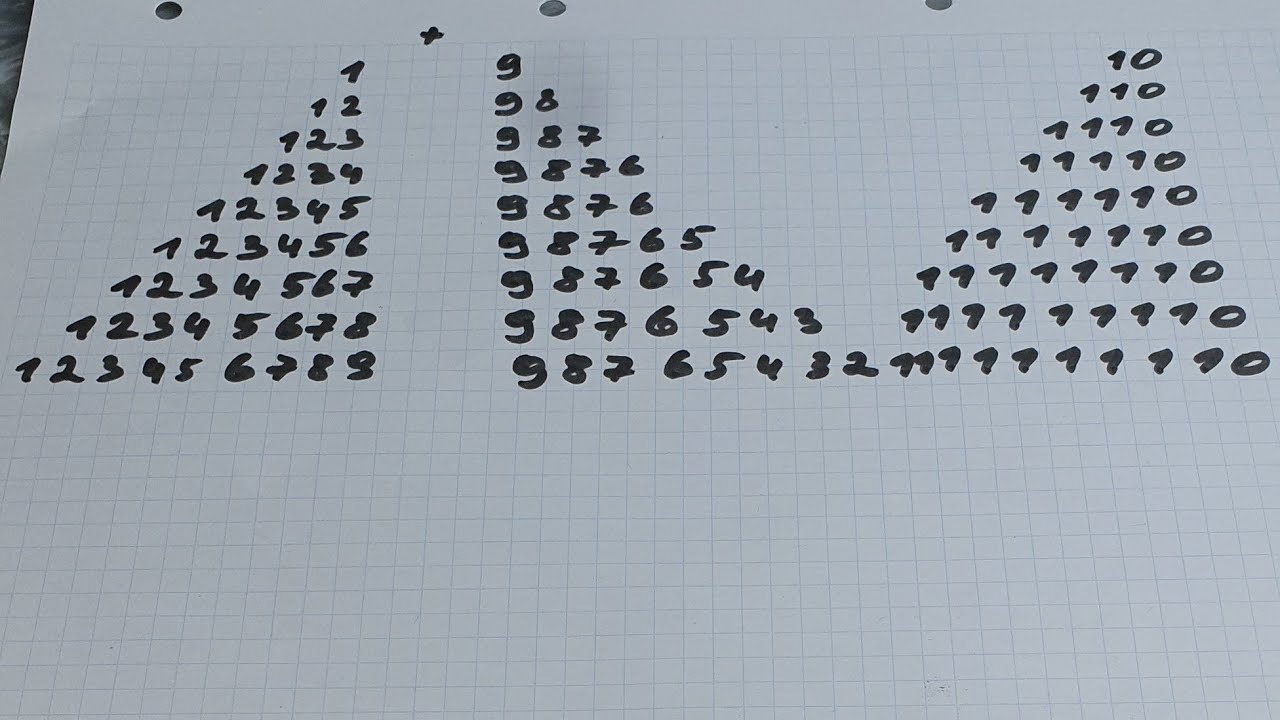 +
1 9 10
12 98 110
123 987 1110
1234 9876 11110
12345 9876 111110
123456 98765 1111110
1234567 987654 11111110
12345678 9876543 111111110
123456789 98765432 1111111110